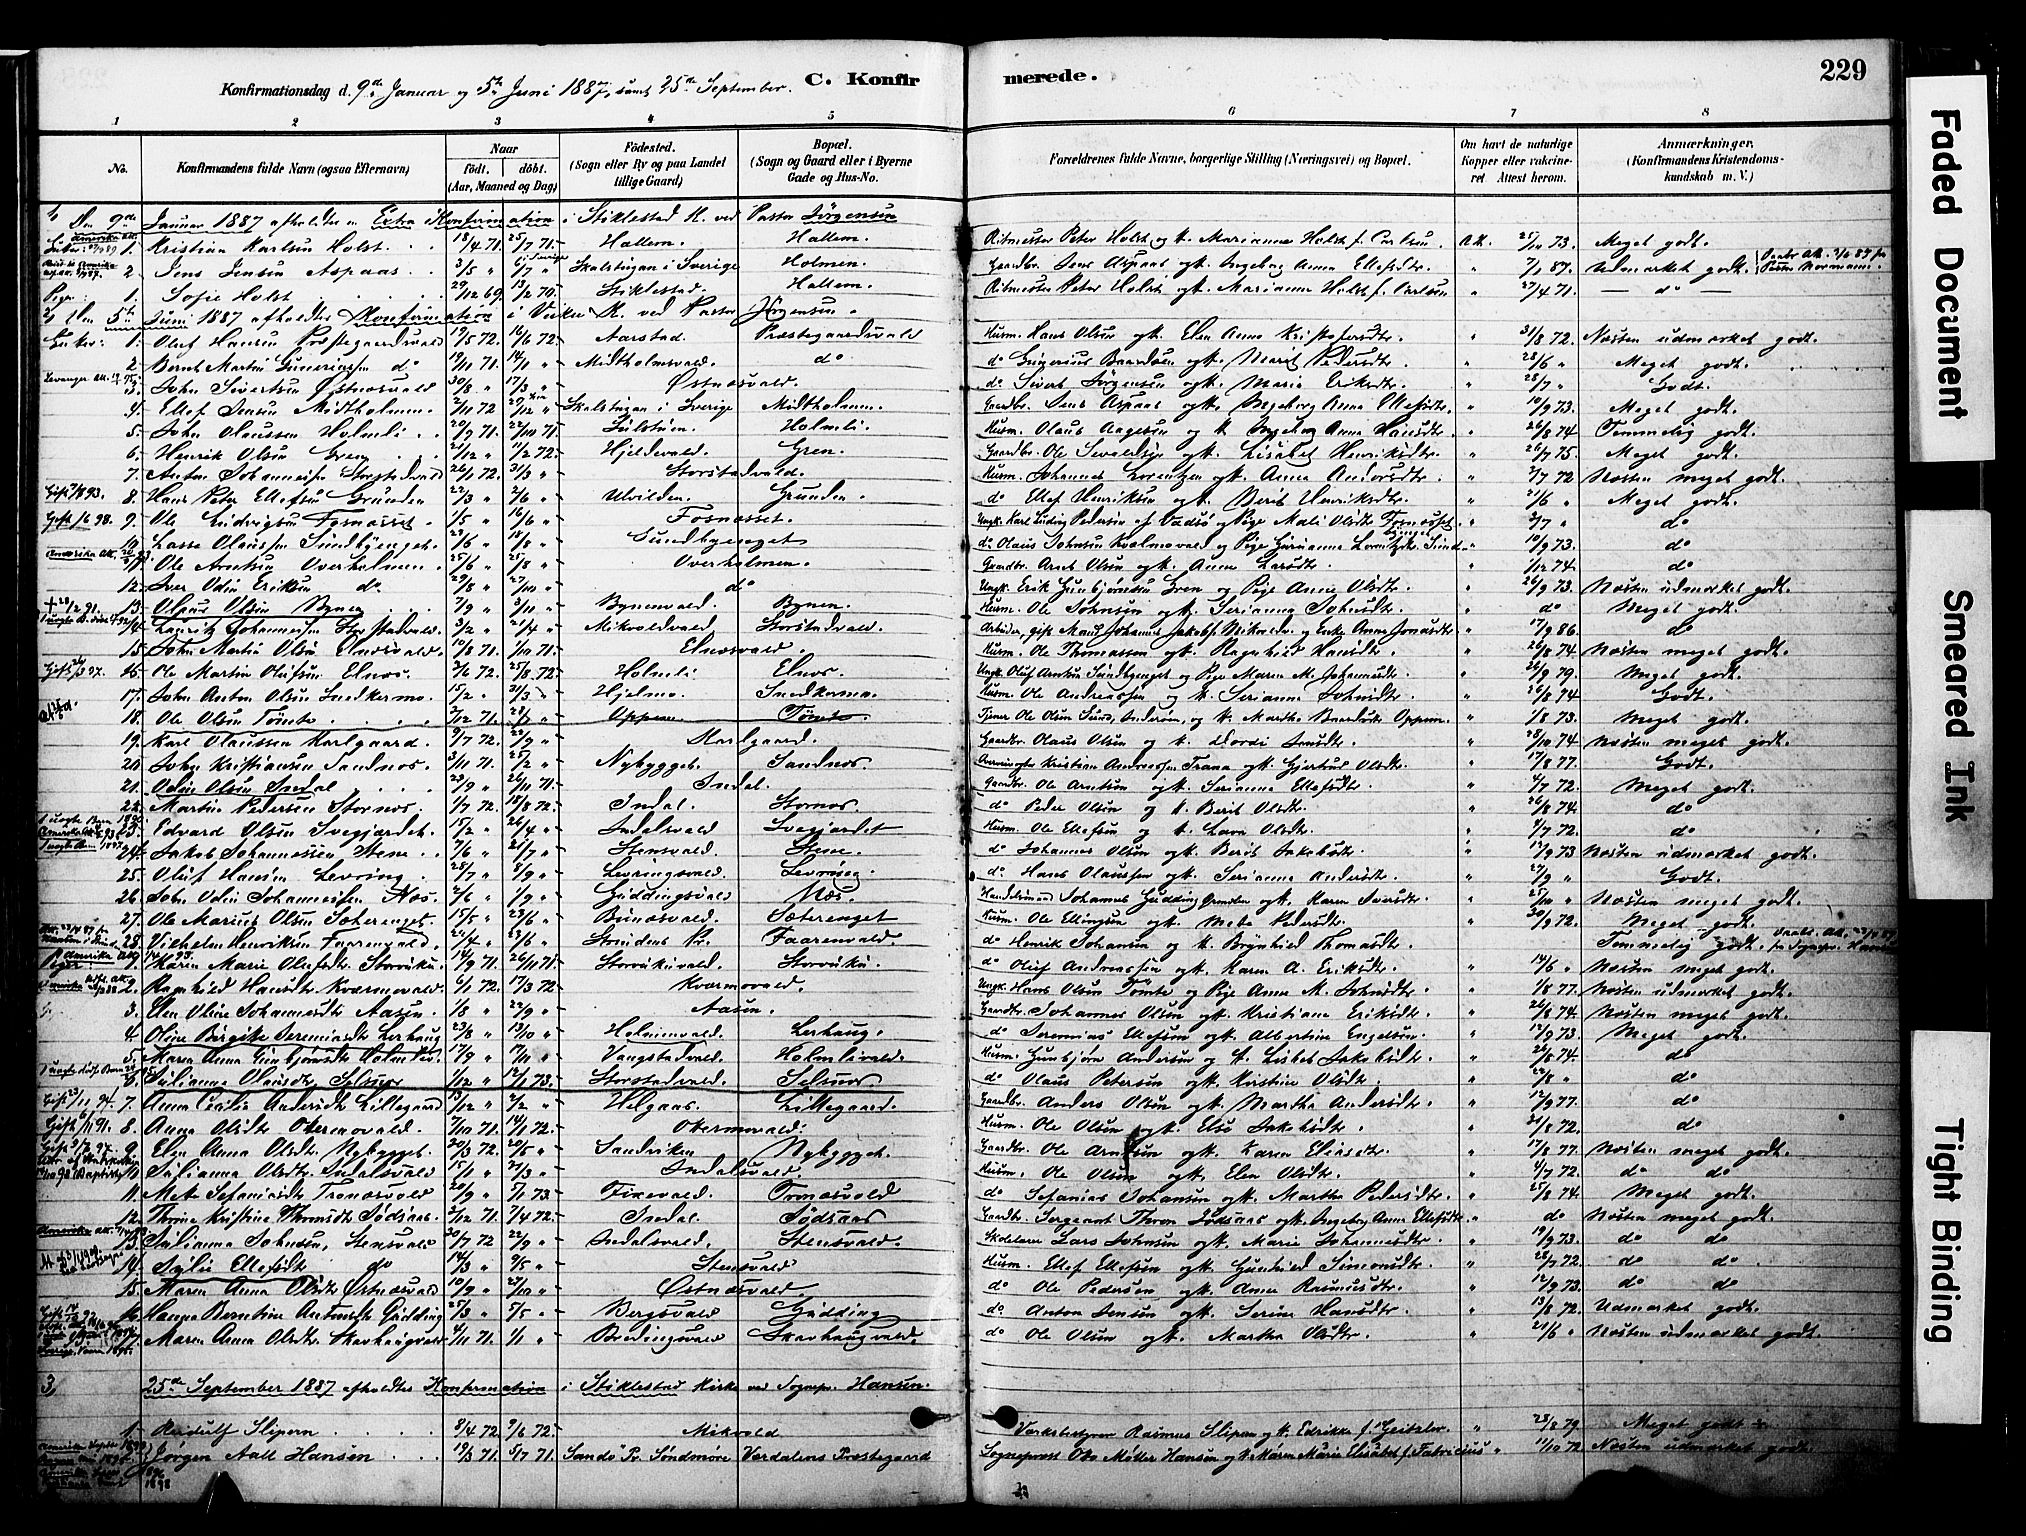 229
Konfirmationsdag d. 9de Januar og 5te Juni 1887, samt 25de September. C. Konfir merede.
1 2 3 4 5 6 7 8
No. Konfirmandens fulde Navn (ogsaa Efternavn) Naar født. døbt. (Aar, Maaned og Dag) Fødested. (Sogn eller By og paa Landet tillige Gaard) Bopæl. (Sogn og Gaard eller i Byerne Gade og Hus-No. Forældrenes fulde Navne, borgerlige Stilling (Næringsvei) og Bopæl. Om havt de naturlige Kopper eller vaccineret Attest herom. Anmærkninger. (Konfirmandens Kristendomskundskab m. V.)
Den 9de Januar 1887 afholdtes Extra Konfirmation i Stiklestad K. ved Pastor Jørgensen
1. Kristian Karlsen Holst 18/4 71. 25/7 71. Hallem. Hallem. Ritmester Peter Holst og H. Marianne Holst f. Carlsen Att. 25/10 73. Meget godt.
2. Jens Jensen Aspaas 3/5 " 6/7 " Skalstugan i Sverige Holmen. Gaardbr. Jens Aspaas og H. Ingeborg Anna Ellefsdtr. " 7/1 87. Udmærket godt.
1. Sofie Holst 29/12 69. 13/2 70. Stiklestad. Hallem. Ritmester Peter Holst og H. Marianne Holst f. Carlsen " 27/4 71. — do —
Den 5te Juni 1887 afholdtes Konfirmation i Vuku K. ved Pastor Jørgensen.
1. Oluf Hansen Præstegaardsvald 19/5 72. 16/6 72. Aarstad. Præstegaardsvald Husm. Hans Olsen og H. Elen Anna Kristofersdtr. " 31/8 72. Næsten udmærket godt.
2. Bernt Martin Guneriussen do 19/11 71. 14/1 " Midtholmsvald. do do Gunerius Baardsen og H. Marit Pedersdtr. " 28/6 " Meget godt.
3. John Sivertsen Østnæsvald 30/8 " 17/3 " Østnæsvald. do Sivert Jørgensen og H. Maria Eriksdtr. " 28/7 " Godt.
4. Ellef Jensen Midtholmen. 2/11 72 29/12 " Skalstugan i Sverige Midtholmen. Gaardbr. Jens Aspaas og H. Ingeborg Anna Ellefsdtr. " 10/9 73. Meget godt.
5. John Olaussen Holmli 20/9 71. 22/10 71. Julstuen. Holmli. Husm. Olaus Aagesen og H. Ingeborg Anna Hansdtr. " 26/8 74 Temmelig godt.
6. Henrik Olsen Gren 21/12 " 11/2 72. Hjeldevald. Gren. Gaardbr. Ole Sevaldsen og H. Lisabet Henriksdtr. " 26/7 75. Meget godt.
7. Anton Johannessen Storstadvald 26/1 72. 31/3 " Storstadvald. Husm. Johannes Lorentzen og H. Anna Andersdtr. " 2/7 72 Næsten meget godt.
Gift 7/8 93. 8. Hans Peter Ellefsen Grunden 22/3 " 2/6 " Ulvilden. Grunden. do Ellef Henriksen og H. Berit Henriksdtr. " 21/6 " Meget godt.
Gift /6 98. 9. Ole Ludvigsen Fosnæsset. 1/5 " 16/6 " Fosnæsset. Ungk. Karl Ludvig Pedersen af Vadsø og Pige Mali Olsdtr. Fosnæsset " 2/7 " do
10. Lasse Olaussen Sundbyenget. 23/6 " 18/8 " Sundbyenget do Olaus Johnsen Kvalmevald og Pige Gurianna Lorntzdtr. Sund " 10/9 73. do
11. Ole Arntsen Overholmen. 25/6 " 11/8 " Overholmen. Gaardbr. Arnt Olsen og H. Anne Larsdtr. " 1/12 74. do
12. Iver Odin Eriksen do. 29/8 " 27/10 " do Ungk. Erik Gunbjørnsen Gren og Pige Anne Olsdtr. " 26/9 73. Næsten udmærket godt.
+ 28/2 91. 13. Olaus Olsen Bynen 7/9 " 3/11 " Bynenvald. Bynen. Husm. Ole Johnsen og H. Serianna Johnsdtr. " do Meget godt.
14. Lauritz Johannessen Storstadvald. 3/2 " 21/4 " Mikvoldvald. Storstadvald. " 17/9 86. do
15. John Martin Olsen Elnæsvald. 10/8 71. 7/10 71. Elnæsvald. Husm. Ole Thomassen og H. Ragnhild Hansdtr. " 26/8 74. Næsten meget godt.
16. Ole Martin Olufsen Elnæs. 2/6 72. 25/8 72. Holmli. Elnæs. Ungk. Oluf Arntsen Sundbyenget og Pige Maren M. Johannesdtr. " 26/9 79. Meget godt.
17. John Anton Olsen Snedkermo 15/2 " 31/3 " Hjelmo. Snedkermo. Husm. Ole Andreassen og H. Serianna Johnsdtr. " 26/8 74 Godt.
18. Ole Olsen Tømte 7/12 71. " Oppem. Tømte. " 1/8 73. Meget godt.
19. Karl Olaussen Karlgaard. 9/7 72. 22/9 " Karlgaard. Gaardbr. Olaus Olsen og H. Dordi Jensdtr. " 28/10 74. Næsten meget godt.
20. John Kristiansen Sandnæs. 3/11 71. 25/2 " Nybygget. Sandnæs. Kristian Andreassen Trana og H. Gjertrud Olsdtr. " 17/8 77. Godt.
21. Odin Olsen Indal 23/9 " 26/11 71. Indal. Gaardbr. Ole Arntsen og H. Serianna Ellefsdtr. " 4/7 72. Meget godt.
22. Martin Pedersen Stornæs. 1/7 72. 18/8 72. Indal. Stornæs do Peder Olsen og H. Berit Olsdtr. " 26/8 74. do
23. Edvard Olsen Svegjærdet. 15/2 " 26/4 " Indalsvald Svegjærdet Husm. Ole Ellefsen og H. Lava Olsdtr. " 2/7 72. do
24. Jakob Johannessen Stene 7/6 " 21/7 " Stensvald. Stene. do Johannes Olsen og H. Berit Jakobsdtr. " 12/9 73 Næsten udmærket godt.
25. Oluf Hansen Levring. 28/7 " 8/9 " Levringsvald. Levring. do Hans Olaussen og H. Serianna Andersdtr. " 27/9 " Godt.
26. John Odin Johannessen Næs. 2/6 " 1/9 " Guddingsvald Næs. " 25/10 " Næsten meget godt.
27. Ole Marius Olsen Sæterenget. 15/5 " 23/6 " Bunæsvald. Sæterenget Husm. Ole Ellingsen og H. Meta Pedersdtr. " 30/9 72. Meget godt.
28. Vilhelm Henriksen Faarenvald. 22/4 " 23/6 " Strindens Pr. Faarenvald. do Henrik Johansen og H. Brynhild Thomasdtr. Temmelig godt.
1. Karen Marie Olufsdtr. Storvuku. 14/9 71. 26/11 71. Storvukuvald. Storvuku. do Oluf Andreassen og H. Karen A. Eriksdtr. " 14/6 " Næsten meget godt.
2. Ragnhild Hansdtr. Kværmovald. 6/1 72. 17/3 72 Kværmovald. Ungk. Hans Olsen Tømte og Pige Anna M. Johnsdtr. " 1/8 77. Næsten udmærket godt.
3. Elen Oline Johannesdtr. Aasen. 1/8 " 22/9 " Aasen. Gaardbr. Johannes Olsen og H. Kristiana Eriksdtr. " 26/8 74. Næsten meget godt.
4. Oline Birgitte Jeremiasdtr. Lerhaug 23/8 " 13/10 " Holmenvald. Lerhaug. do Jeremias Ellefsen og H. Albertine Engelsen. " 12/9 73. Meget godt.
5. Maren Anna Gunbjørnsdtr. Holmlivald 17/9 " 7/11 " Vangstadvald. Holmlivald. Husm. Gunbjørn Andersen og H. Lisbet Jakobsdtr. " 26/8 74. do
6. Julianna Olausdtr. Selsnes 1/12 " 12/1 73. Storstadvald. Selsnes do Olaus Petersen og H. Kirstine Olsdtr. " 22/8 " do
7. Anna Cecilia Andersdtr. Lillegaard 13/12 " 2/2 " Helgaas. Lillegaard. Gaardbr. Anders Olsen og H. Martha Andersdtr. " 12/9 77. do
8. Anna Olsdtr. Overmovald. 7/10 71. 14/1 72. Overmovald. Husm. Ole Olsen og H. Elsa Jakobsdtr. " 21/8 72. do
9. Elen Anna Olsdtr. Nybygget. 30/3 72 20/5 " Sandviken Nybygget. Gaardbr. Ole Arntsen og H. Karen Eliasdtr. " 17/8 77 Næsten meget godt.
10. Julianna Olsdtr. Indalsvald 15/1 " 21/3 " Indalsvald Husm. Ole Olsen og H. Elen Olsdtr. " 4/7 72. do do
11. Meta Stefaniasdtr. Tronæsvald 20/9 " 1/1 73. Tronæsvald do Stefanias Johansen og H. Martha Pedersdtr. " 25/8 74. Meget godt.
12. Thomine Kristine Thomasdtr. Sødsaas. 2/12 71. 7/4 72. Indal. Sødsaas Gaardbr. Sergeant Sødsaas og H. Ingeborg Anna Ellefsdtr. " do Næsten meget godt.
13. Julianna Johnsen, Stensvald 20/7 72 22/9 " Indalsvald. Stensvald. Skolelærer Lars Johnsen og H. Marie Johannesdtr. " 19/9 73. do do
14. Sylvi Ellefsdtr. do 14/3 " 9/5 " Stensvald Husm. Ellef Ellefsen og H. Gunhild Simonsdtr. " 28/7 72. do do
15. Maren Anna Olsdtr. Østnæsvald 10/9 " 27/10 " Østnæsvald. do Ole Pedersen og H. Anne Rasmusdtr. " 12/9 73. do do
16. Hanna Berntine Antonsdtr. Gudding 25/3 " 5/5 " Bergsvald Gudding do Anton Jensen og H. Serine Hansdtr. " 13/8 72. Udmærket godt.
17. Maren Anna Olsdtr. Skavhaugvald 4/11 71. 1/1 " Bredingsvald Skavhaugvald. do Ole Olsen og H. Martha Olsdtr. " 21/6 " Næsten udmærket godt.
3, 25de September 1887 afholdtes Konfirmation i Stiklestad Kirke ved Sognepr. Hansen.
1. Reidulf Slipern 8/4 72. 9/6 72. Mikvold Værkstedsbestyrer Rasmus Slipern og H. Edrikke f. Geitzler " 28/8 79. Meget godt
2. Jørgen Aall Hansen 19/3 71. 5/7 71. Sandø Pr. Søndmøre Værdalens Præstegaard Sogneprest Otto Møller Hansen og H. Maren Marie Elisabet f. Fabricius " 11/10 72. Næsten udmærket godt
Faded Document
Smeared Ink
Tight Binding